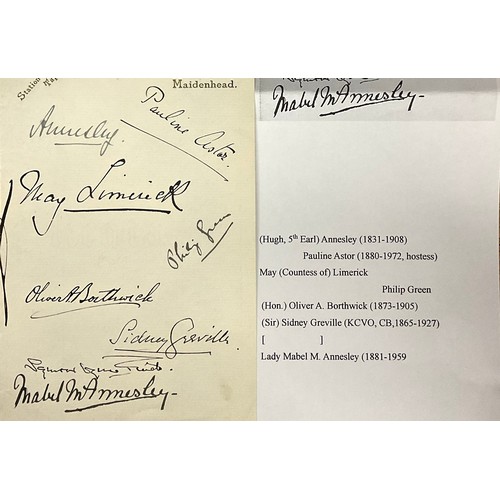 Station
Maidenhead.
Pauline Astor.
Annesley.
May Limerick
Philip Green
Oliver A Borthwick
Sidney Greville.
Mabel M Annesley-
Mabel M Annesley-
(Hugh, 5th Earl) Annesley (1831-1908)
Pauline Astor (1880-1972, hostess)
May (Countess of) Limerick
Philip Green
(Hon.) Oliver A. Borthwick (1873-1905)
(Sir) Sidney Greville (KCVO, CB,1865-1927)
[ ]
Lady Mabel M. Annesley (1881-1959